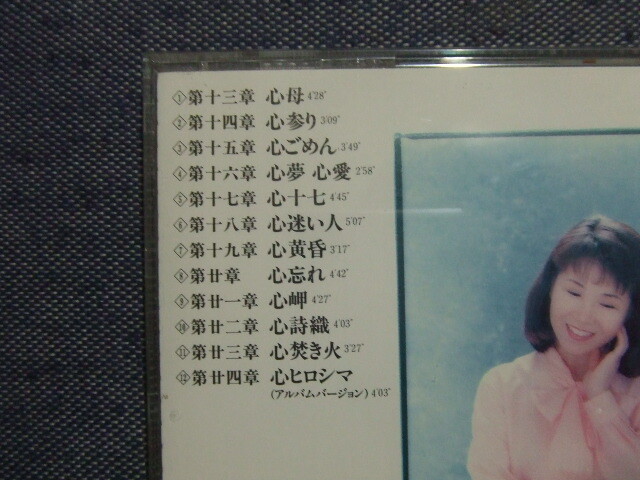 ① 第十三章 心母 4'28"
② 第十四章 心参り 3'09"
③ 第十五章 心ごめん 3'49"
④ 第十六章 心夢 心愛 2'58"
⑤ 第十七章 心十七 4'45"
⑥ 第十八章 心迷い人 5'07"
⑦ 第十九章 心黄昏 3'17"
⑧ 第廿章 心忘れ 4'42"
⑨ 第廿一章 心岬 4'27"
⑩ 第廿二章 心詩織 4'03"
⑪ 第廿三章 心焚き火 3'27"
⑫ 第廿四章 心ヒロシマ
(アルバムバージョン) 4'03"